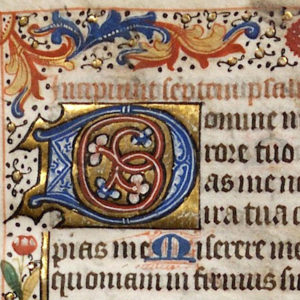 Incipiunt septem psal
Domine n
rore tuo
as me n
ira tua c
pias me Miserere me
quoniam infirmus su